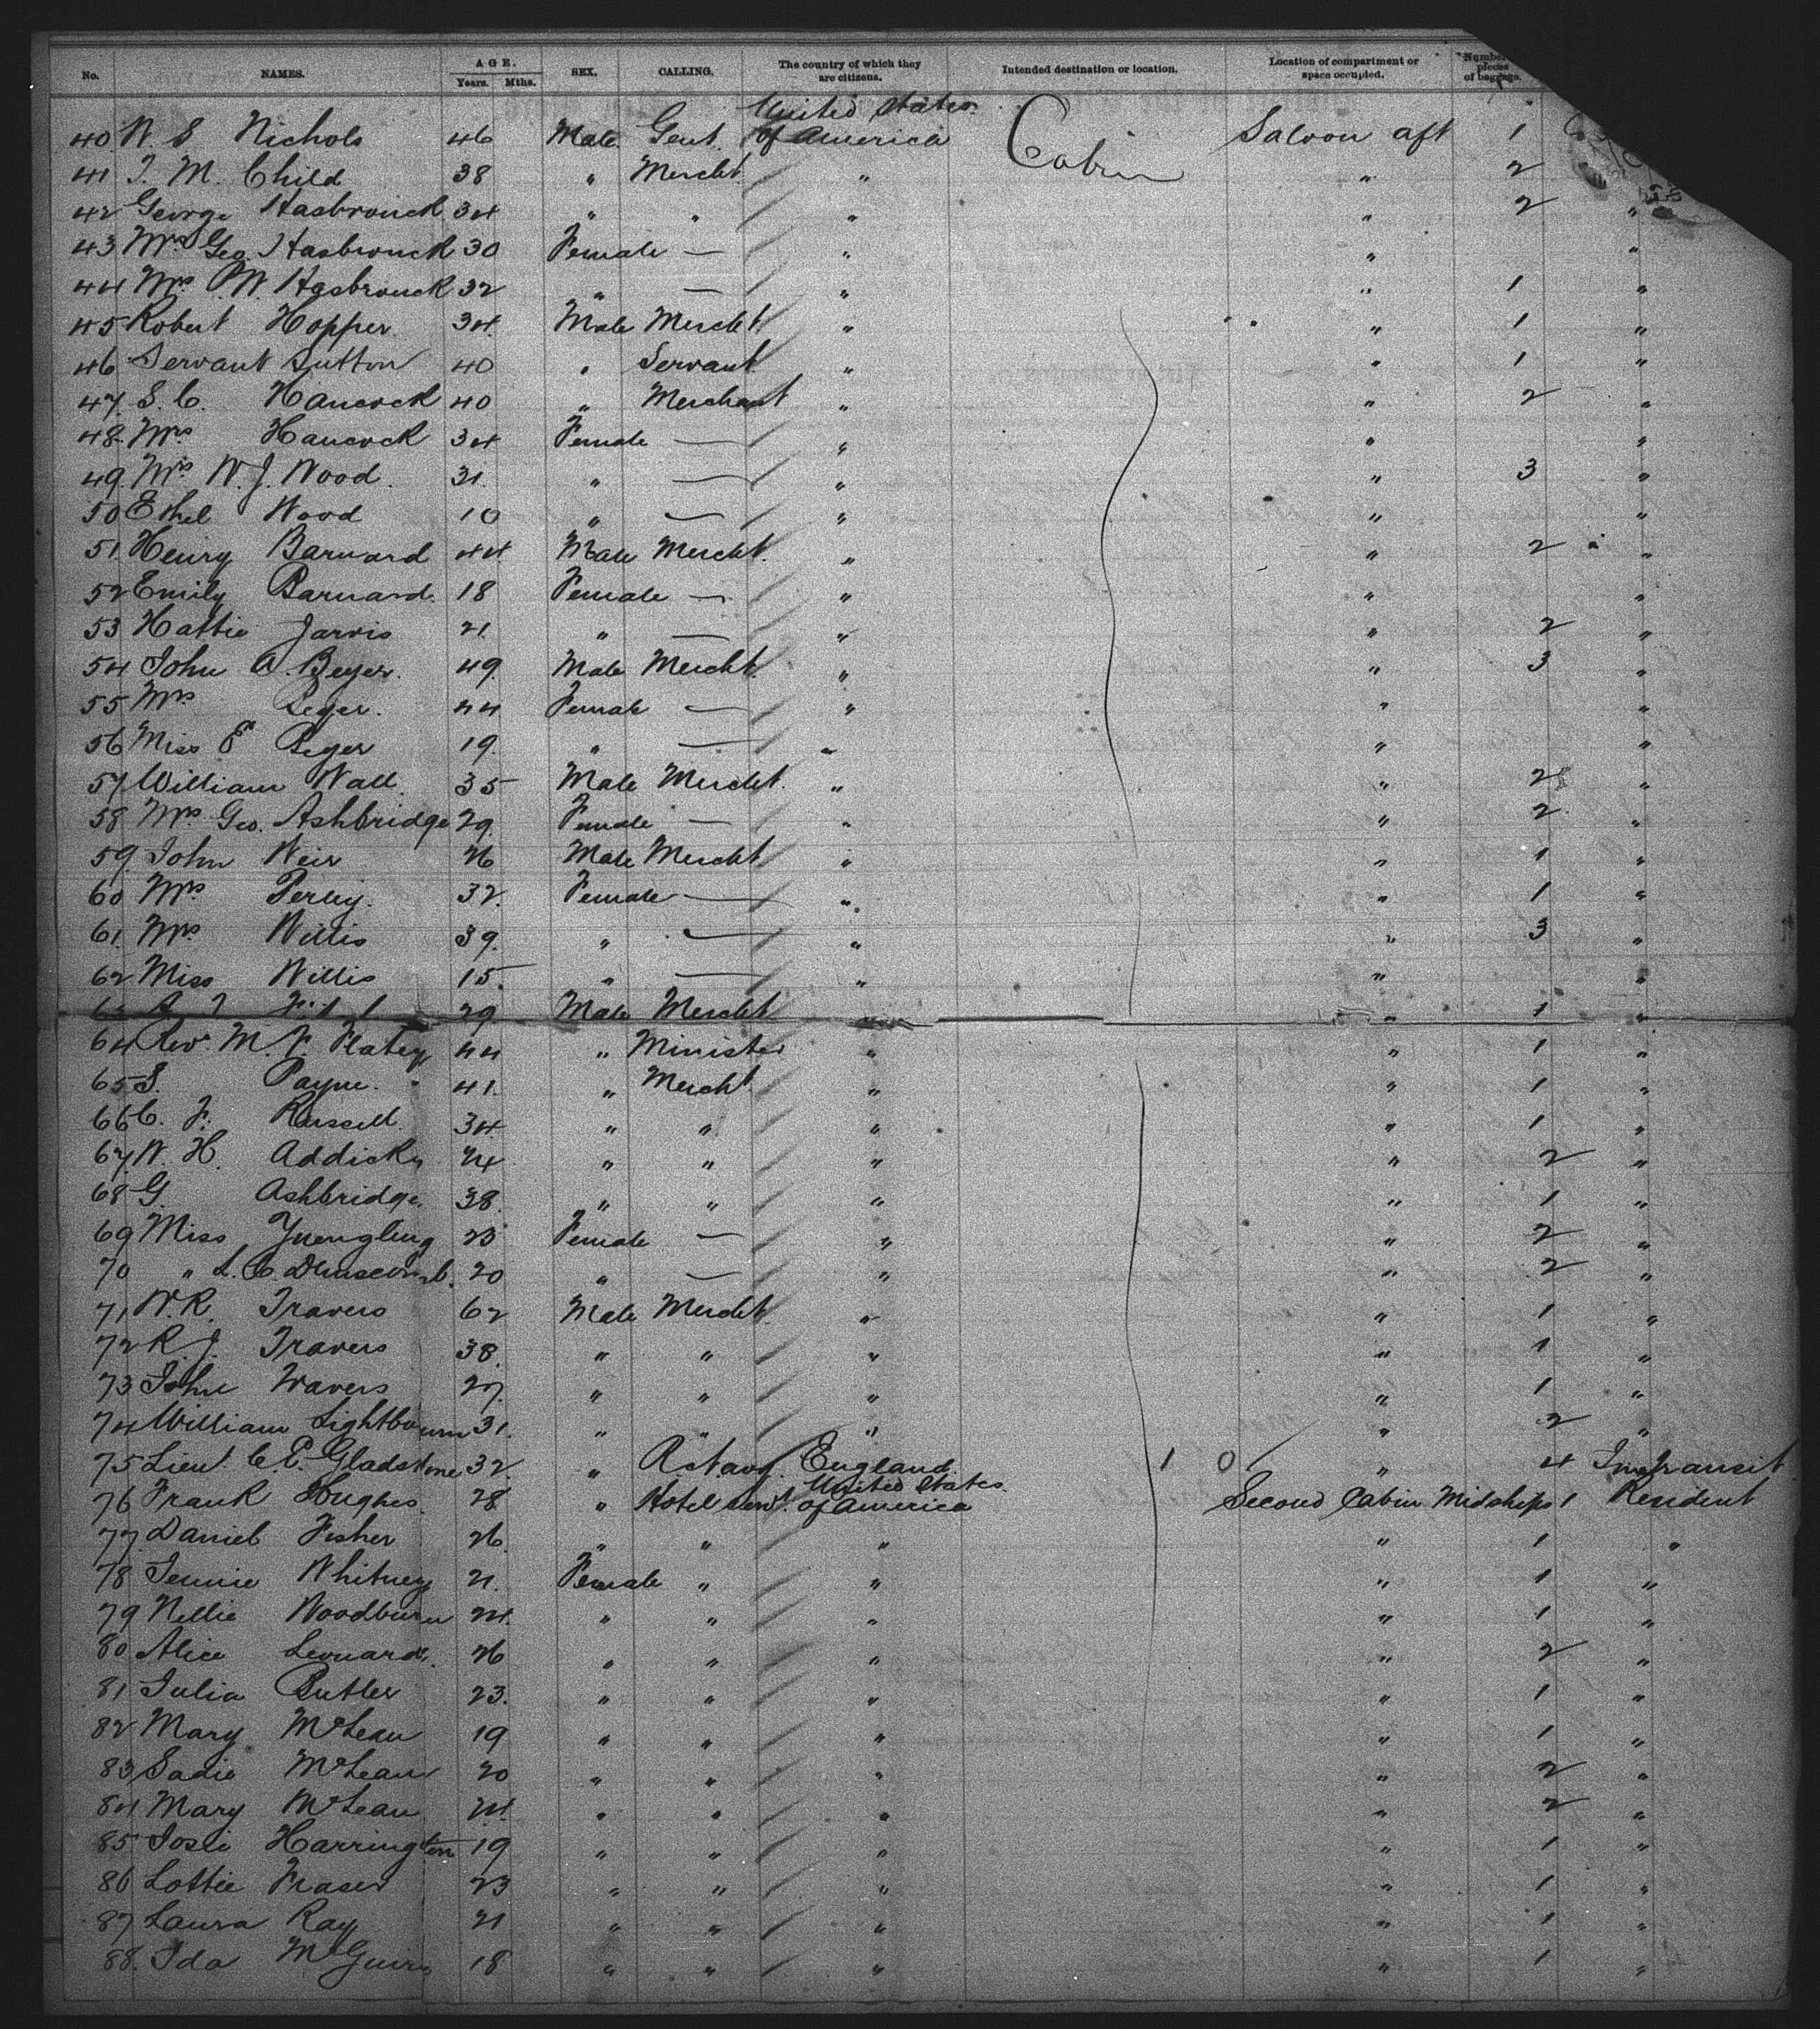 No. NAMES. AGE. Years. Mths. SEX. CALLING. The country of which they are citizens. Intended destination or location. Location of compartment or space occupied. Number pieces of baggage.
40 W. S Nichols 46 Male Gent. United States of America Cabin Saloon aft 1
41 J. M. Child 38 " Mercht. " " 2
42 George Hasbrouck 34 " " " " 2 "
43 Mrs Geo. Hasbrouck 30 Female — " " "
44 Mrs M. Hasbrouck 32 " — " " 1 "
45 Robert Hopper 34 Male Mercht. " " 1 "
46 Servant Sutton 40 " Servant " " 1 "
47 S. C. Hancock 40 " Merchant " " 2 "
48 Mrs Hancock 34 Female — " " "
49 Mrs W. J. Wood 31 " — " " 3 "
50 Ethel Wood 10 " — " " "
51 Henry Barnard 44 Male Mercht. " " 2 "
52 Emily Barnard 18 Female — " " "
53 Hattie Jarvis 21 " — " " 2 "
54 John A. Beyer 49 Male Mercht. " " 3 "
55 Mrs Beyer 44 Female — " " "
56 Miss E Beyer 19 " — " " "
57 William Wall 35 Male Mercht. " " 2 "
58 Mrs Geo. Ashbridge 29 Female — " " 2 "
59 John Weir 26 Male Mercht " " 1 "
60 Mrs Perley 32 Female — " " 1 "
61 Mrs Willis 39 " — " " 3 "
62 Miss Willis 15 " — " " "
63 29 Male Mercht " " 1 "
64 Rev. M. F. 44 " Minister " " 1 "
65 S. Payne 41 " Mercht " " 1 "
66 C. F. Russell 34 " " " " 1 "
67 W. H. Addicks 24 " " " " 2 "
68 G. Ashbridge 38 " " " " 1 "
69 Miss Yuengling 23 Female — " " 2 "
70 " L. C. Dunscomb 20 " — " " 2 "
71 W. R. Travers 62 Male Mercht. " " 1 "
72 R. J. Travers 38 " " " " 1 "
73 John Travers 27 " " " " 1 "
74 William Lightbourn 31 " " " " 2 "
75 Lieut. C. E. Gladstone 32 " R. Navy England 1 0 " 4 In transit
76 Frank Hughes 28 " Hotel servt. United States of America Second Cabin Midships 1 Resident
77 Daniel Fisher 26 " " " " 1 "
78 Jennie Whitney 21 Female " " " 1 "
79 Nellie Woodburn 24 " " " " 1 "
80 Alice Leonard 26 " " " " 2 "
81 Julia Butler 23 " " " " 1 "
82 Mary McLean 19 " " " " 1 "
83 Sadie McLean 20 " " " " 2 "
84 Mary McLean 24 " " " " 2 "
85 Josie Harrington 19 " " " " 1 "
86 Lottie Fraser 23 " " " " 1 "
87 Laura Ray 21 " " " " 1 "
88 Ida McGuire 18 " " " " 1 "